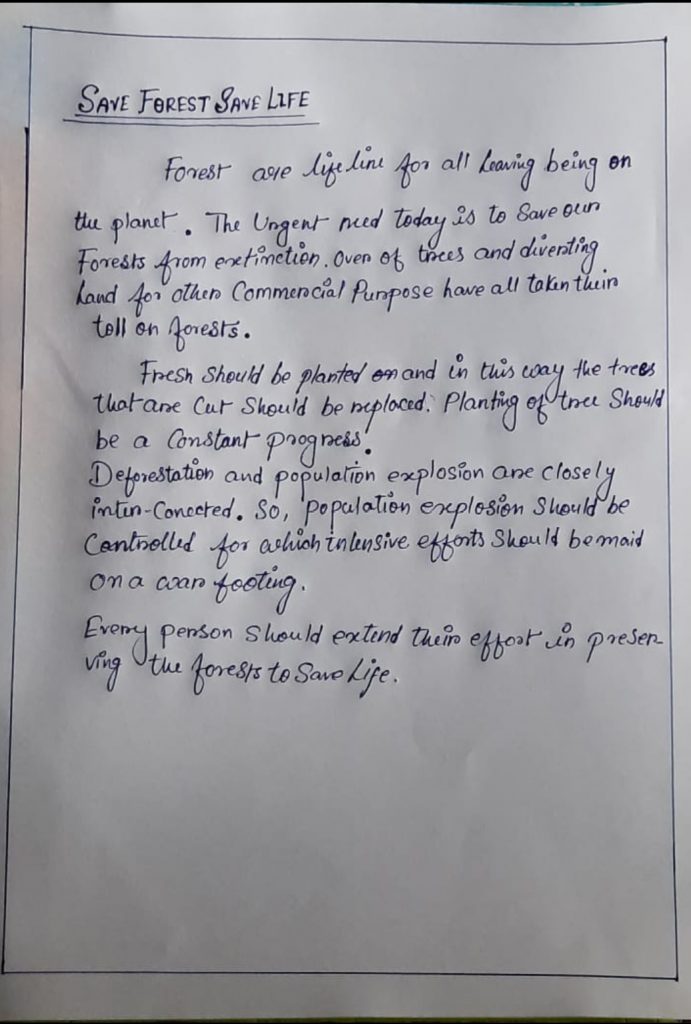 SAVE FOREST SAVE LIFE
Forest are life line for all leaving being on
the planet. The Urgent need today is to Save our
Forests from extinction. Over of trees and diverting
Land for other Commercial Purpose have all taken their
toll on forests.
Fresh Should be planted and in this way the trees
that are Cut Should be replaced. Planting of tree Should
be a Constant progress.
Deforestation and population explosion are closely
inter-Conected. So, population explosion Should be
Controlled for which intensive efforts Should be maid
on a war footing.
Every person Should extend their effort in preser-
ving the forests to Save Life.